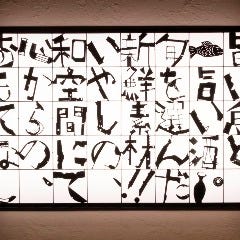 旨い魚と
旨い酒
旬を選んだ
新鮮素材!!
いやしの
和空間にて
心からの